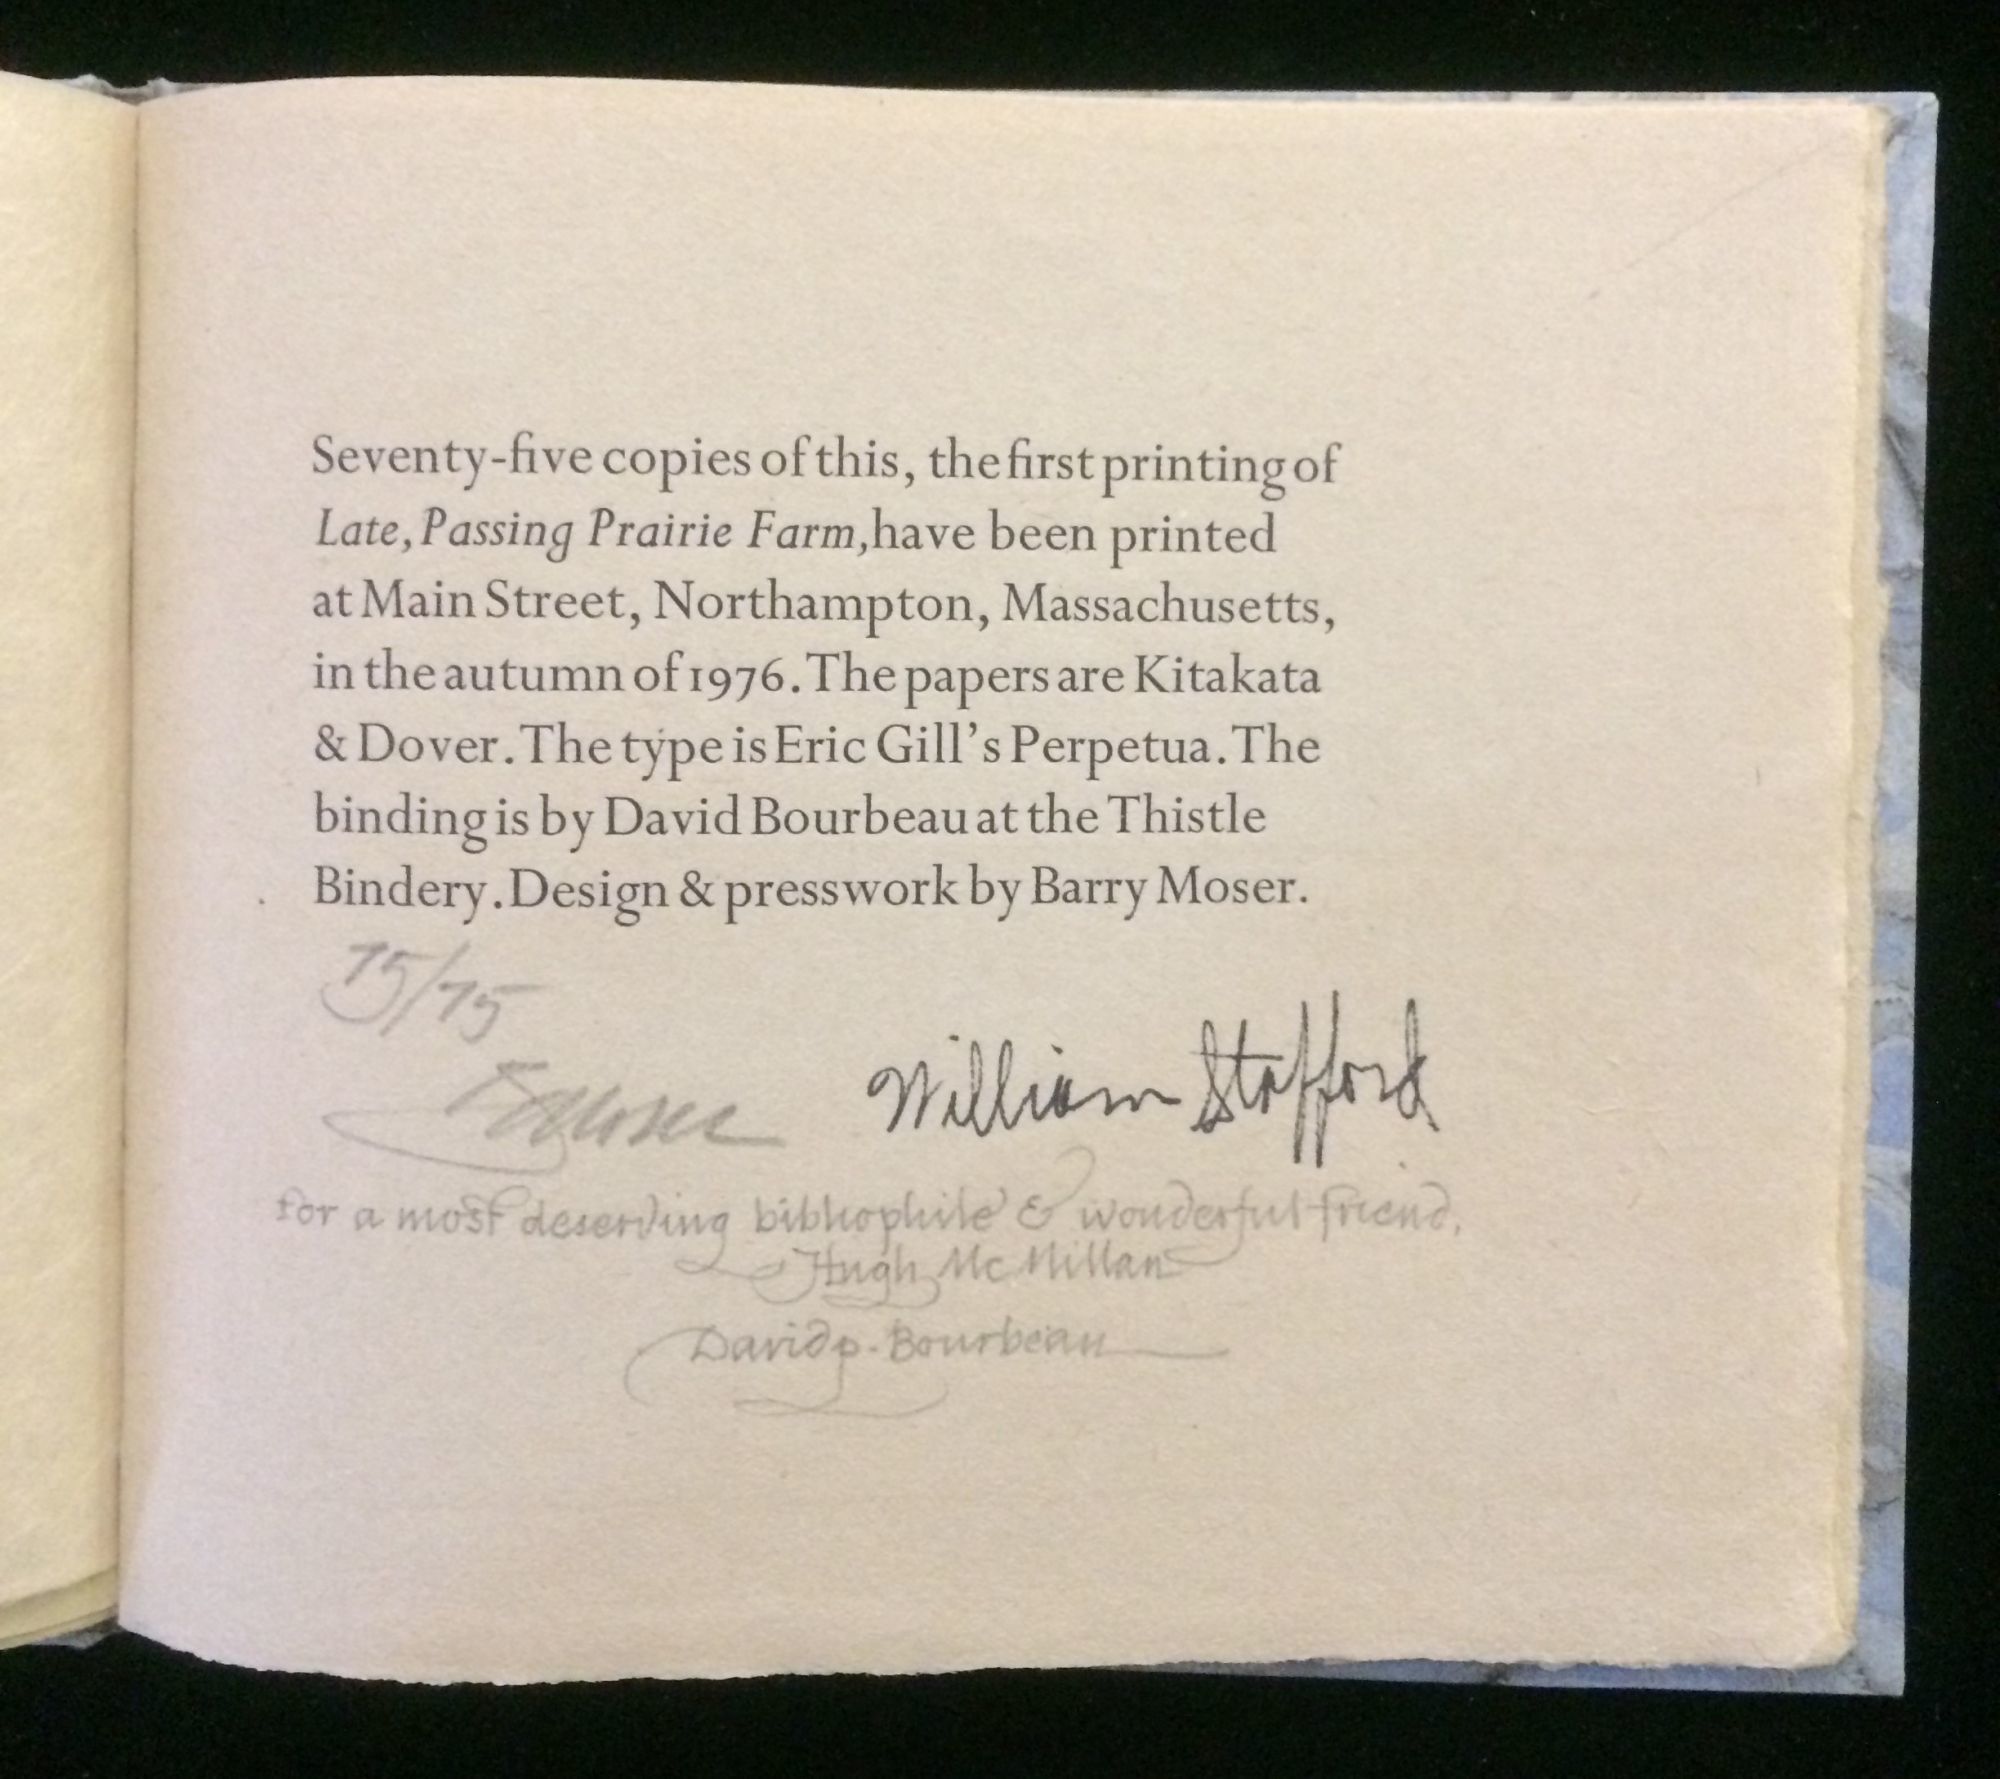 Seventy-five copies of this, the first printing of
Late, Passing Prairie Farm, have been printed
at Main Street, Northampton, Massachusetts,
in the autumn of 1976. The papers are Kitakata
& Dover. The type is Eric Gill's Perpetua. The
binding is by David Bourbeau at the Thistle
Bindery. Design & presswork by Barry Moser.
75/75
William Stafford
for a most deserving bibliophile & wonderful friend,
Hugh McMillan
David p. Bourbeau